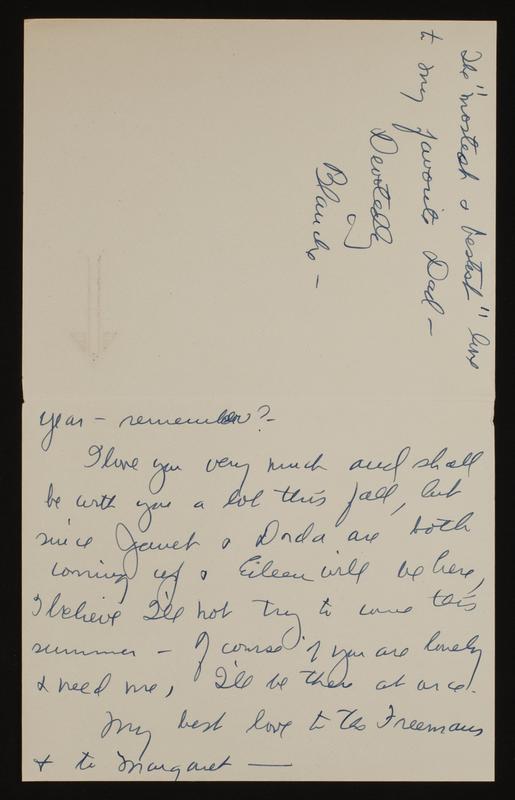 year – remember? –
I love you very much and shall
be with you a lot this fall, but
since Janet & Dorda are both
coming up & Eileen will be here,
I believe I'll not try to come this
summer – Of course if you are lonely
& need me, I'll be there at once.
My best love to the Freemans
+ to Margaret —
The "mostest & bestest" love
to my favorite Dad –
Devotedly
Blanche –